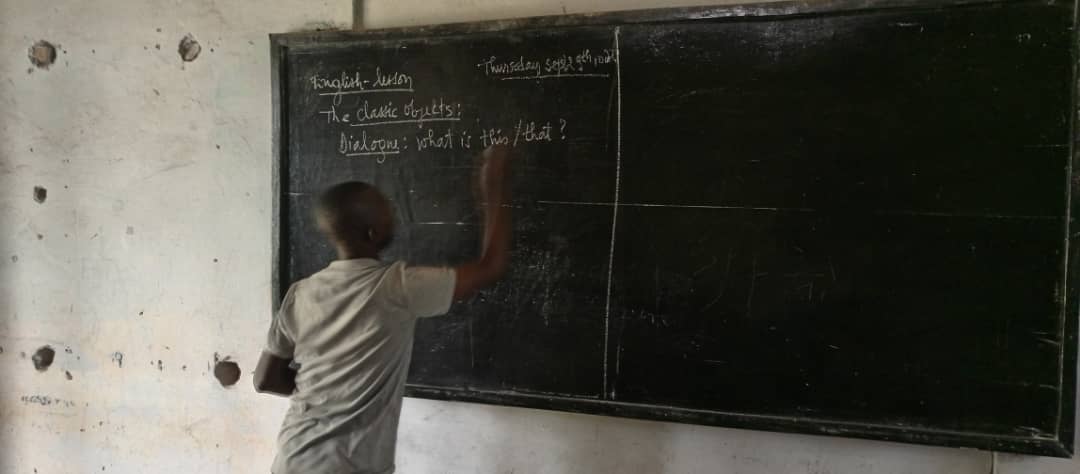 Thursday sept 9th
English-lesson
The classic objects:
Dialogue: what is this/that?